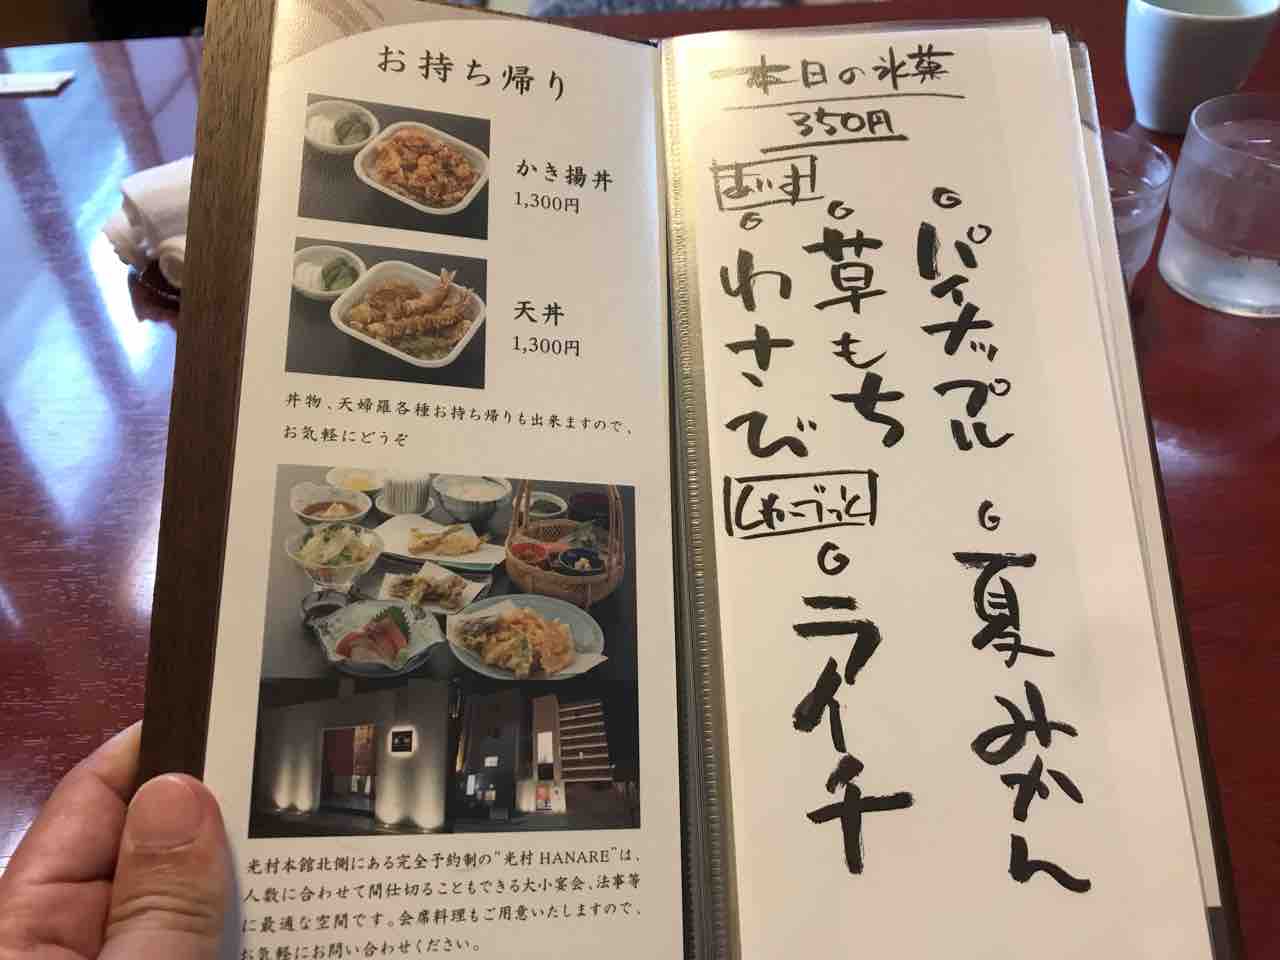 お持ち帰り
かき揚丼
1,300円
天丼
1,300円
丼物、天婦羅各種お持ち帰りも出来ますので、
お気軽にどうぞ
光村本館北側にある完全予約制の“光村 HANARE”は、
人数に合わせて間仕切ることもできる大小宴会、法事等
に最適な空間です。会席料理もご用意いたしますので、
お気軽にお問い合わせください。
本日の氷菓
350円
パイナップル
夏みかん
あいす
草もち
わさび
しゃーべっと
ライチ